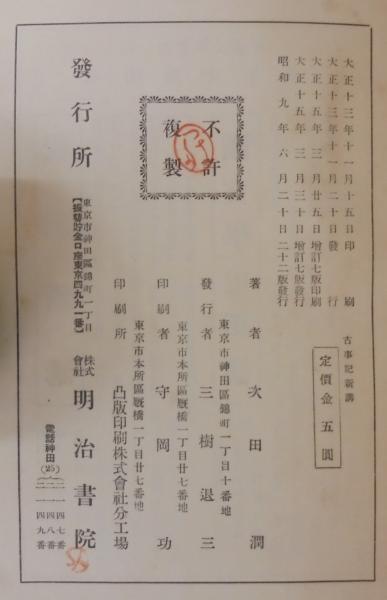 大正十三年十一月十五日印刷
大正十三年十一月二十日發行
大正十五年三月廿五日增訂七版印刷
大正十五年三月三十日增訂七版發行
昭和九年六月二十日二十二版發行
古事記新講
定價金五圓
不許
複製
著者 次田潤
東京市神田區錦町一丁目十番地
發行者 三樹退三
東京市本所區厩橋一丁目廿七番地
印刷者 守岡功
東京市本所區厩橋一丁目廿七番地
印刷所 凸版印刷株式會社分工場
發行所
東京市神田區錦町一丁目
【振替貯金口座東京四九九一番】
株式會社 明治書院
電話神田(25)
一四七番
一四八番
一四九番